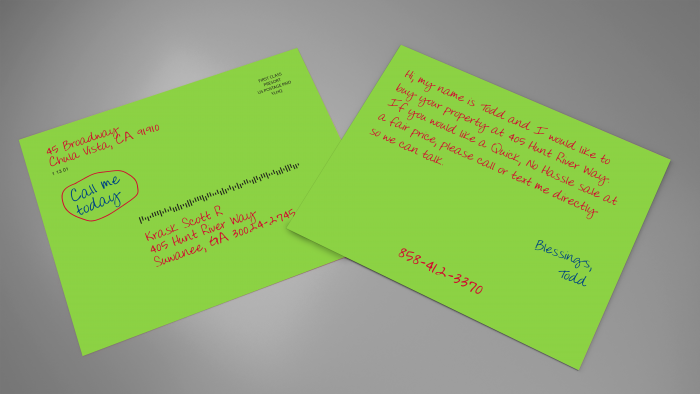 FIRST CLASS
PRESORT
US POSTAGE PAID
YLHQ
45 Broadway
Chula Vista, CA 91910
1.13.01
Call me
today
Krask Scott R
405 Hunt River Way
Suwanee, GA 30024-2745
Hi, my name is Todd and I would like to
buy your property at 405 Hunt River Way.
If you would like a Quick, No Hassle sale at
a fair price, please call or text me directly
so we can talk.
Blessings,
Todd
858-412-3370